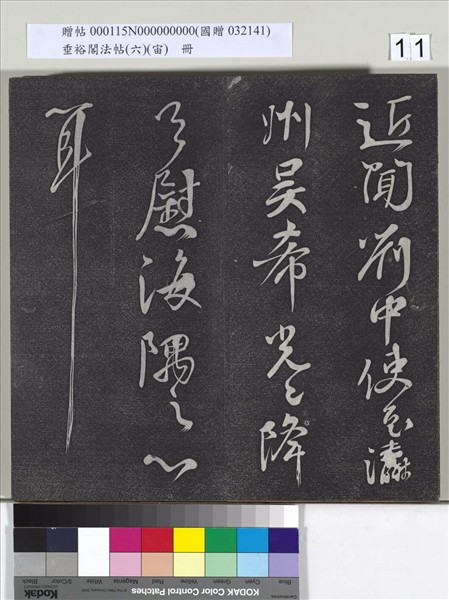 贈帖 000115N000000000(國贈 032141)
垂裕閣法帖(六)(宙) 冊
11
近聞劉中使至瀛
州吳希光已降
足慰海隅之心
耳
Blue Cyan Green Yellow Red Magenta White 3/Color Black
Kodak
KODAK Color Control Patches